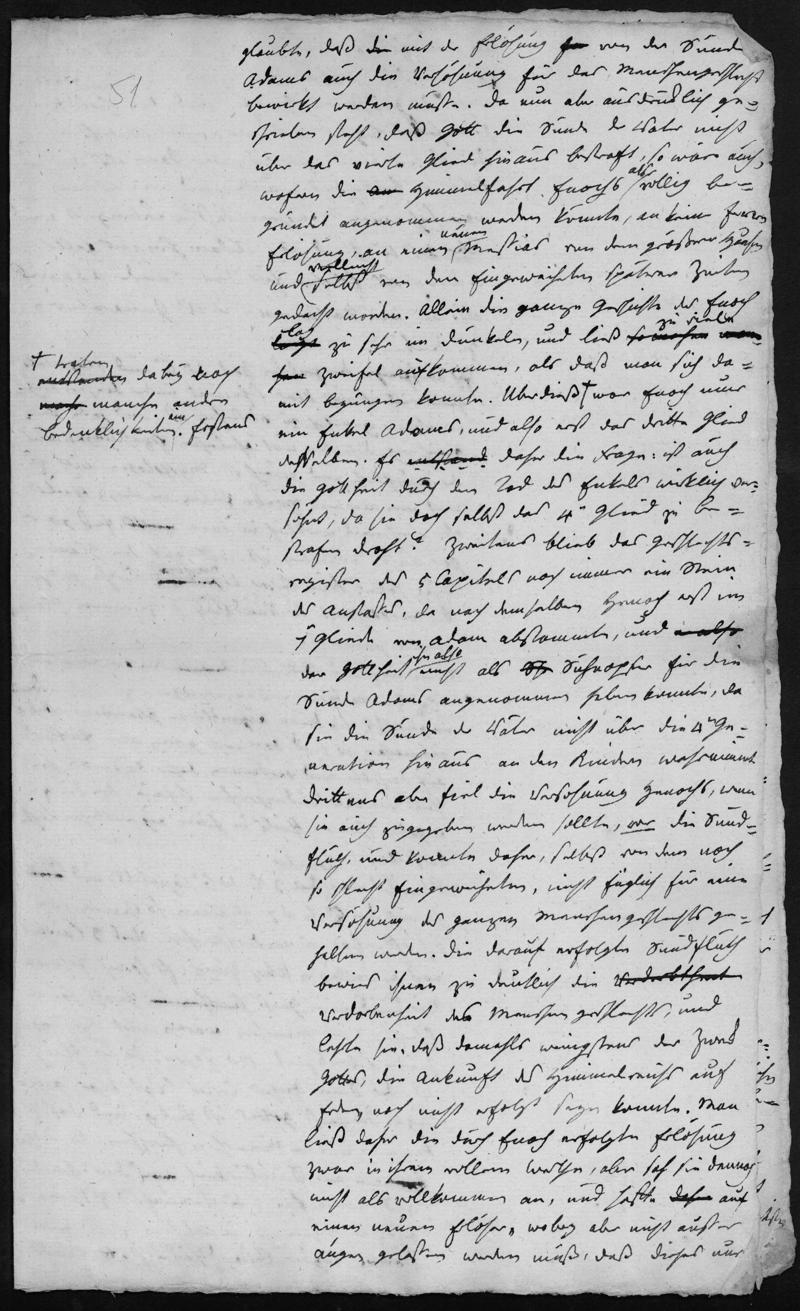 51
glaubte, daß die mit der Erlösung von der Sünde
Adams auch die Versöhnung für das Menschengeschlecht
bewirkt werden mußte. Da nun aber ausdrücklich ge-
schrieben steht, daß Gott die Sünde der Väter nicht
über das vierte Glied hinaus bestraft, so wäre auch,
wofern die Himmelfahrt Enochs als völlig be-
gründet angenommen werden könnte, an keine fernere
Erlösung, an einen neuen Messias von dem größern Haufen
und vielleicht selbst von den Eingeweihten späterer Zeiten
gedacht worden. Allein die ganze Geschichte des Enoch
lag zu sehr im Dunkeln, und ließ zu viele
Zweifel aufkommen, als daß man sich da-
mit begnügen konnte. Überdieß † war Enoch nur
ein Enkel Adams, und also erst das dritte Glied
desselben. Es entstand daher die Frage: ist auch
die Gottheit durch den Tod des Enkels wirklich ver-
söhnt, da sie doch selbst das 4te Glied zu be-
strafen droht? Zweitens blieb das Geschlechts-
register des 5 Capitels noch immer ein Stein
des Anstoßes, da nach demselben Henoch erst im
7ten Gliede von Adam abstammte, und also
der Gottheit nicht als Sühnopfer für die
Sünde Adams angenommen haben konnte, da
sie die Sünde der Väter nicht über die 4te Ge-
neration hinaus an den Kindern wahrnimmt
Drittens aber fiel die Versöhnung Henochs, wenn
sie auch zugegeben werden sollte, vor die Sünd-
fluth, und konnte daher, selbst von den noch
so schlecht Eingeweihten, nicht füglich für eine
Versöhnung des ganzen Menschengeschlechts ge-
halten werden. Die darauf erfolgte Sündfluth
bewies ihnen zu deutlich die Verderbtheit
Verdorbenheit des Menschengeschlechts, und
lehrte sie, daß damahls wenigstens der Zweck
Gottes, die Ankunft des Himmelreichs auf
Erden noch nicht erfolgt seyn konnte. Man
ließ daher die durch Enoch erfolgte Erlösung
zwar in ihrem vollem Werthe, aber sah sie dennoch
nicht als vollkommen an, und hoffte daher auf
einen neuen Erlöser, wobey aber nicht außer
Augen gelassen werden muß, daß dieses nur
† traten
entstanden dabey noch
mehr manche andere
Bedenklichkeiten ein. Erstens